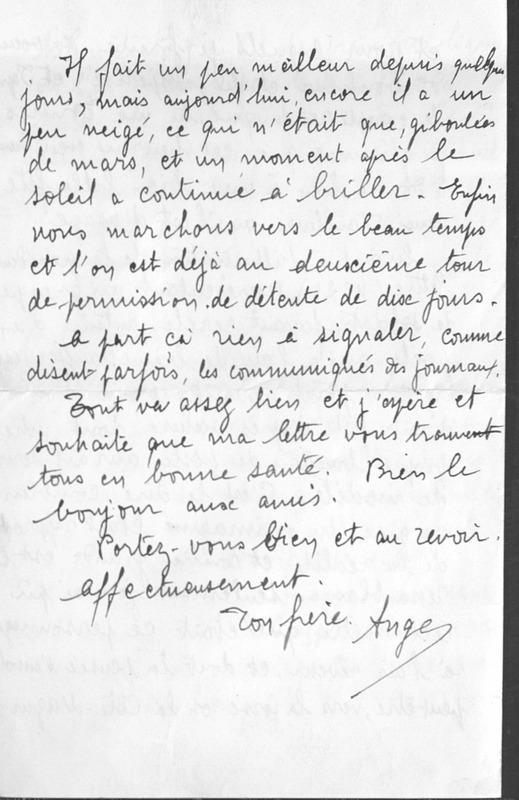 Il fait un peu meilleur depuis quelques
jours, mais aujourd'hui, encore il a un
peu neigé, ce qui n'était que, giboulées
de mars, et un moment après le
soleil a continué à briller. Enfin
nous marchons vers le beau temps
et l'on est déjà au deuxième tour
de permission de détente de dix jours.
A part ça rien à signaler, comme
disent parfois, les communiqués des journaux.
Tout va assez bien et j'espère et
souhaite que ma lettre vous trouvent
tous en bonne santé. Bien le
bonjour aux amis.
Portez-vous bien et au revoir.
affectueusement.
Ton frère. Ange